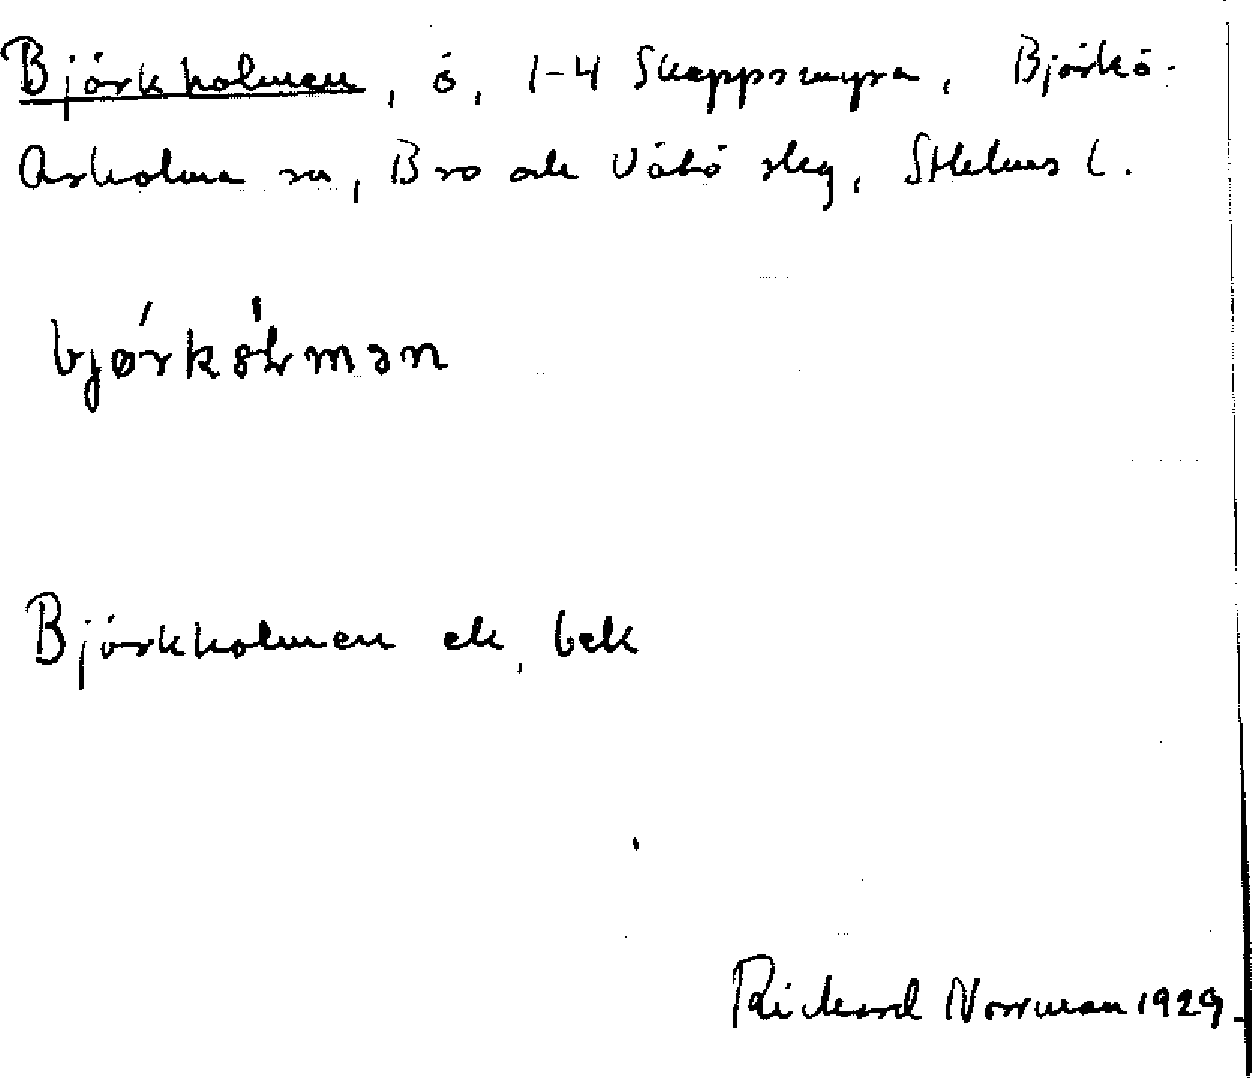 Björkholmen, ö, 1-4 Skeppsmyra, Björkö-
Arholma sn, Bro och Vätö skg, Sthlms l.
bjǿrkɔ́lmən
Björkholmen ek, bek
Rickard Norrman 1929.